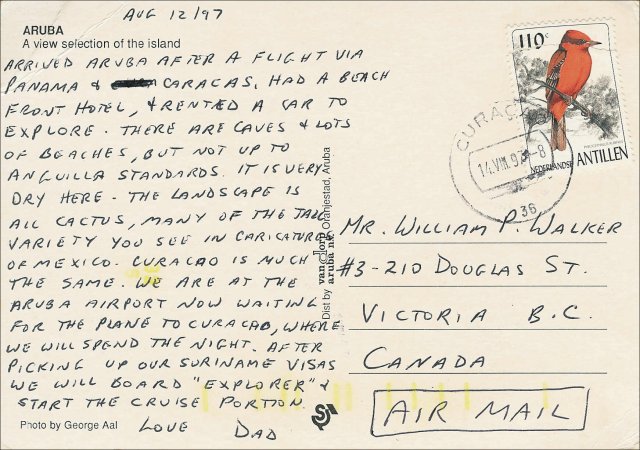 AUG 12/97
ARUBA
A view selection of the island
ARRIVED ARUBA AFTER A FLIGHT VIA
PANAMA & CARACAS, HAD A BEACH
FRONT HOTEL, & RENTED A CAR TO
EXPLORE. THERE ARE CAVES & LOTS
OF BEACHES, BUT NOT UP TO
ANGUILLA STANDARDS. IT IS VERY
DRY HERE - THE LANDSCAPE IS
ALL CACTUS, MANY OF THE TALL
VARIETY YOU SEE IN CARICATURES
OF MEXICO. CURACAO IS MUCH
THE SAME. WE ARE AT THE
ARUBA AIRPORT NOW WAITING
FOR THE PLANE TO CURACAO, WHERE
WE WILL SPEND THE NIGHT. AFTER
PICKING UP OUR SURINAME VISAS
WE WILL BOARD "EXPLORER" &
START THE CRUISE PORTION
LOVE DAD
Photo by George Aal
Dist by van Dorp Oranjestad, Aruba
aruba n.v.
110c
NEDERLANDSE ANTILLEN
CURAÇAO
14.VIII.97 - 8
36
MR. WILLIAM P. WALKER
#3-210 DOUGLAS ST.
VICTORIA B.C.
CANADA
AIR MAIL